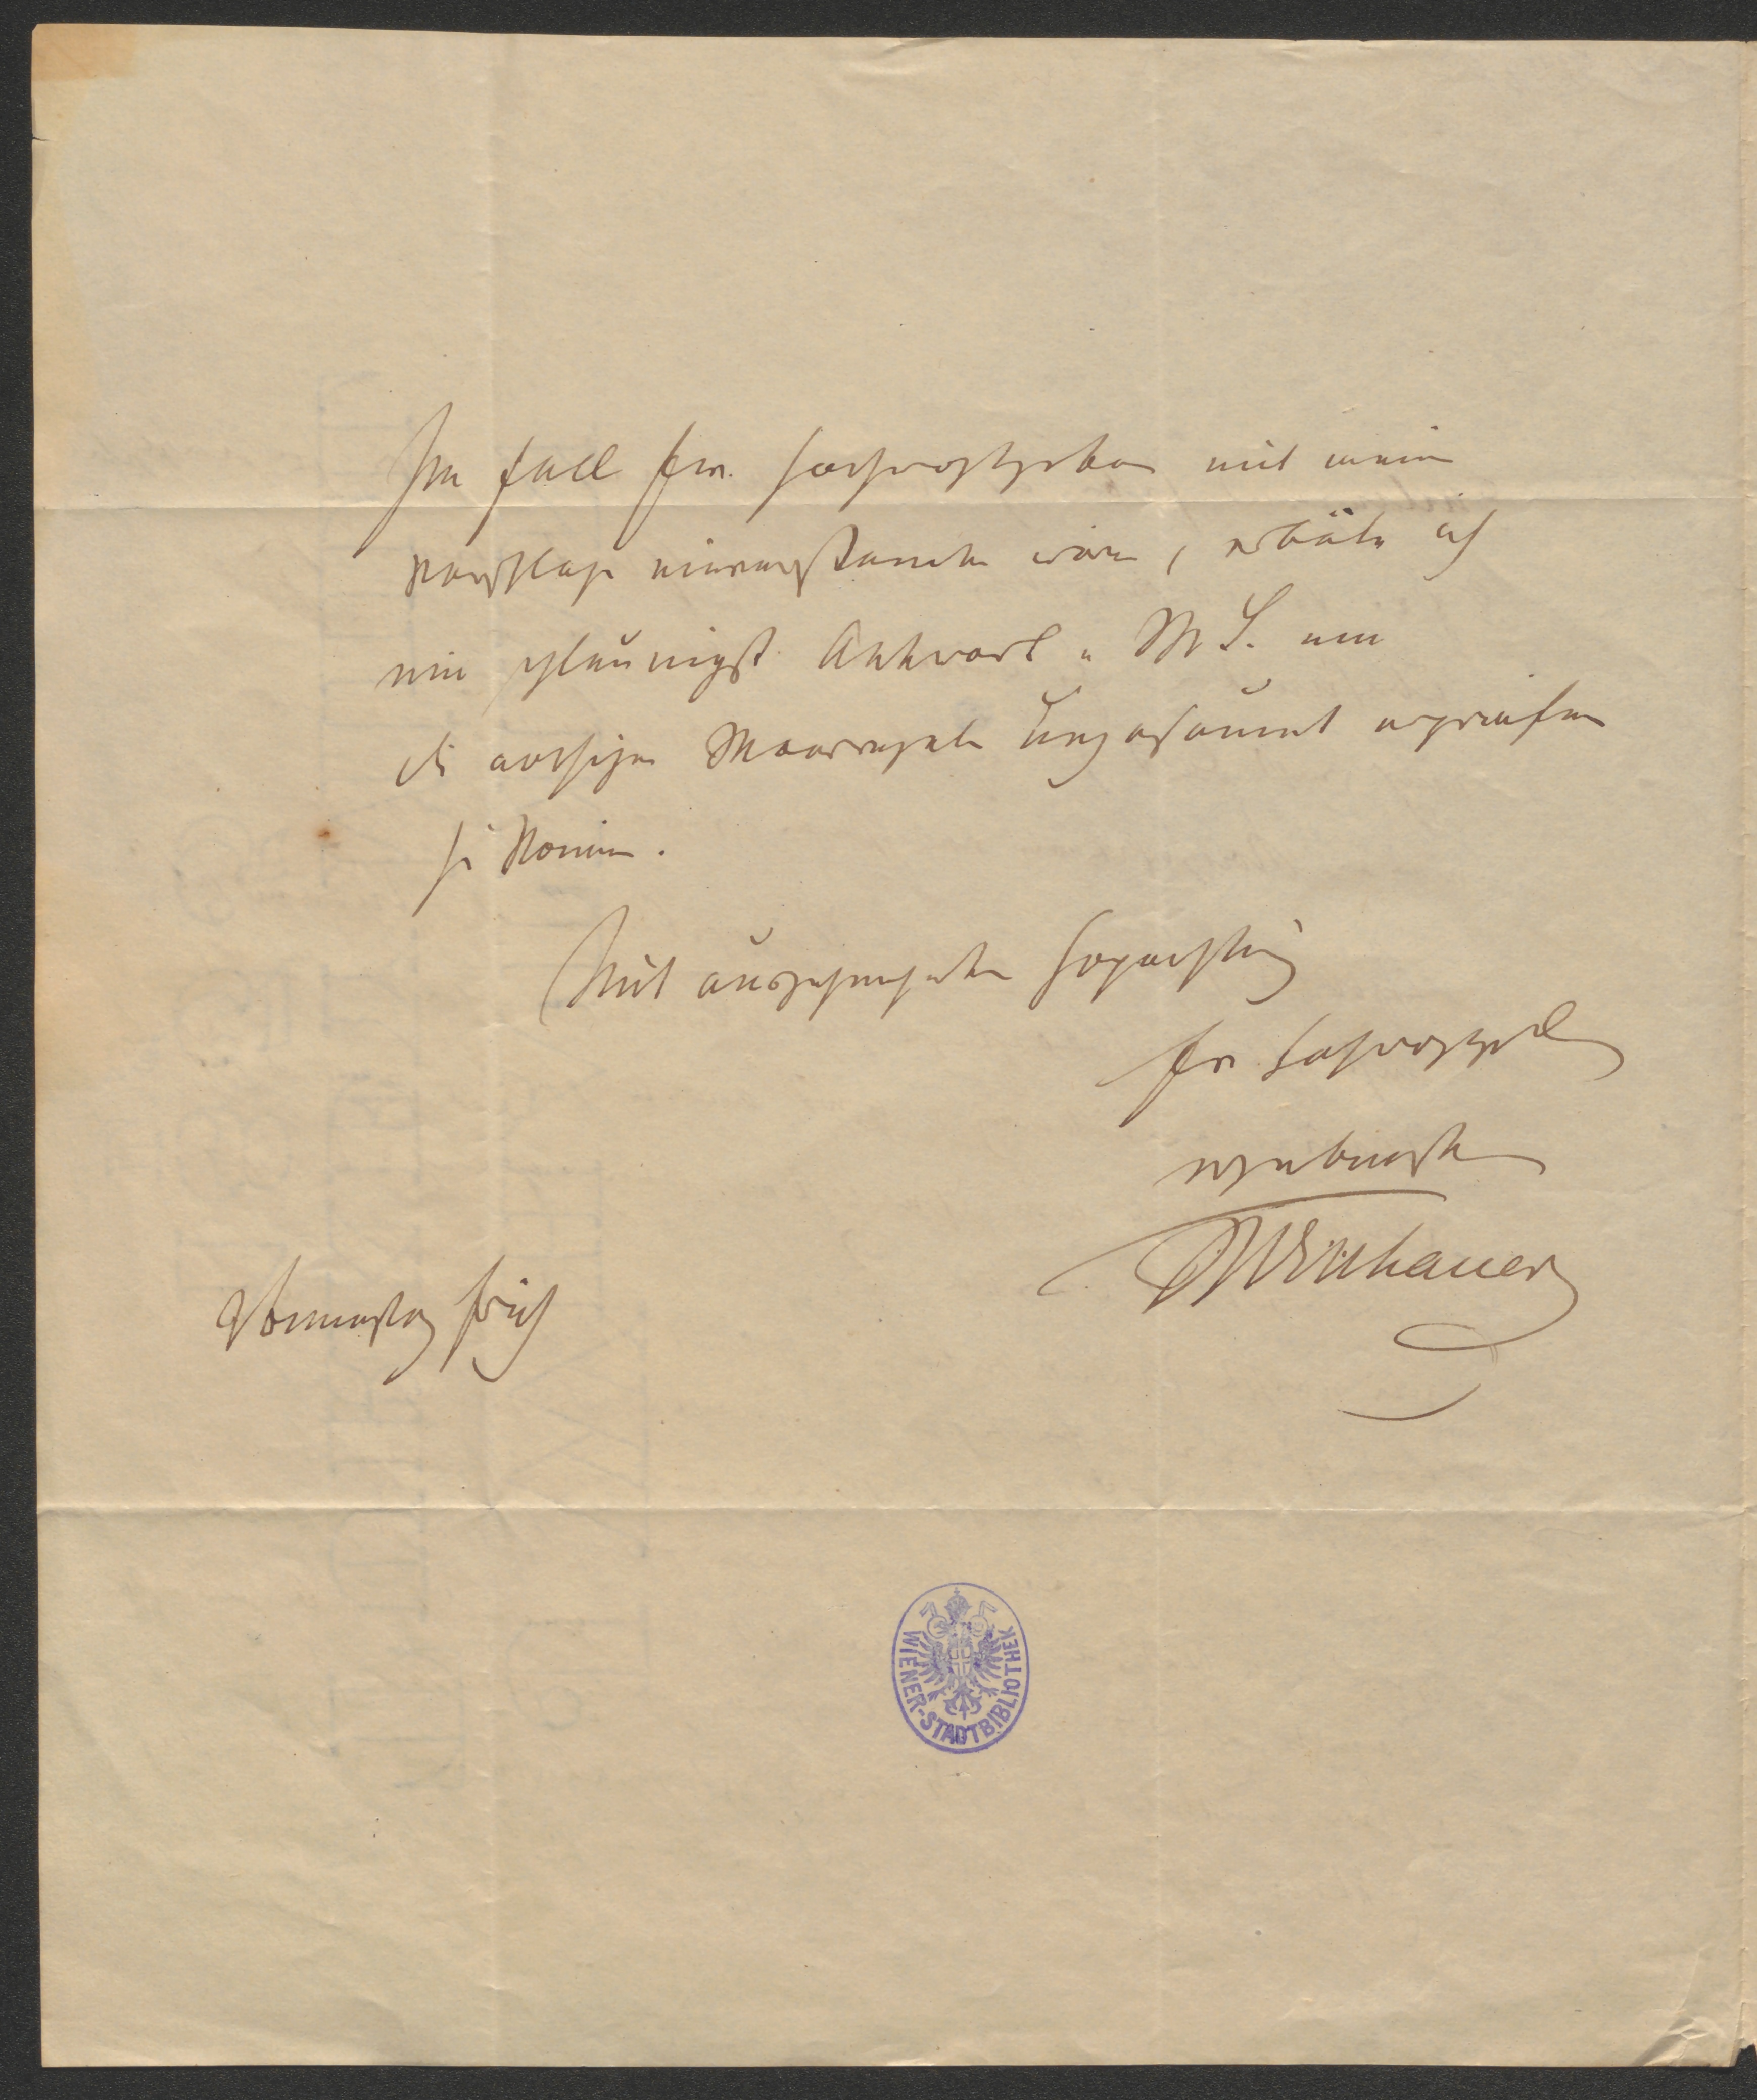 Im Fall Ew. Hochwohlgeboren mit meinem
Vorschlage einverstanden wären, erbäte ich
mir schleunigst Antwort u M S. um
die nöthigen Maasregeln ungesäumt ergreifen
zu können.
Mit ausgezeichneter Hochachtung
Ew Hochwohlgeb
ergebenster
Witthauer
Donnerstag früh
WIENER-STADTBIBLIOTHEK